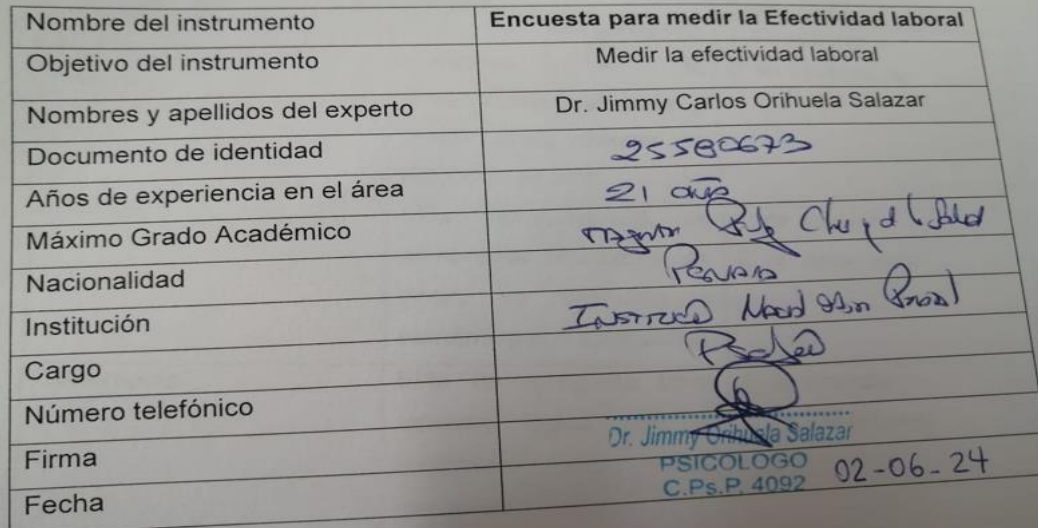 Nombre del instrumento Encuesta para medir la Efectividad laboral
Objetivo del instrumento Medir la efectividad laboral
Nombres y apellidos del experto Dr. Jimmy Carlos Orihuela Salazar
Documento de identidad 25580673
Años de experiencia en el área 21 años
Máximo Grado Académico
Nacionalidad Peruana
Institución
Cargo
Número telefónico
Firma Dr. Jimmy Orihuela Salazar
PSICOLOGO
C.Ps.P. 4092
Fecha 02-06-24